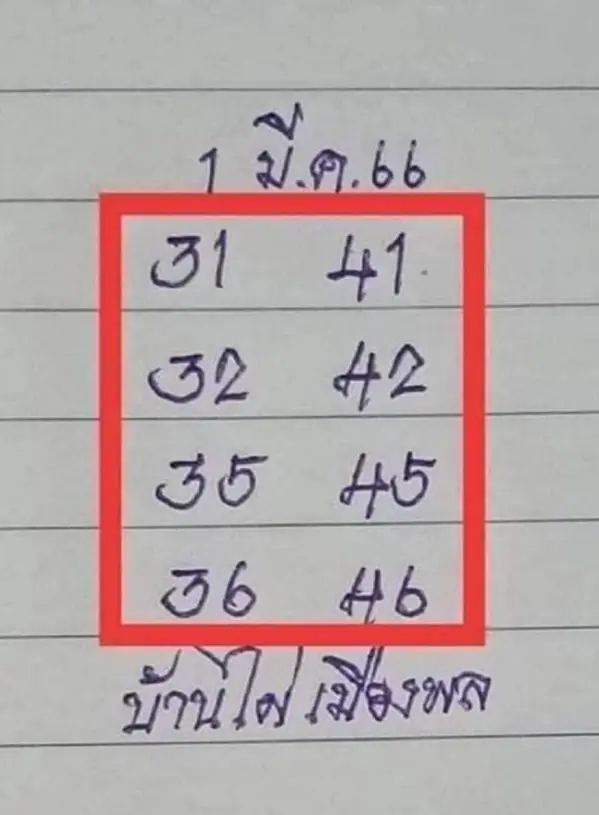 1 มี.ค.66
31 41
32 42
35 45
36 46
บ้านไผ่ เมืองพล